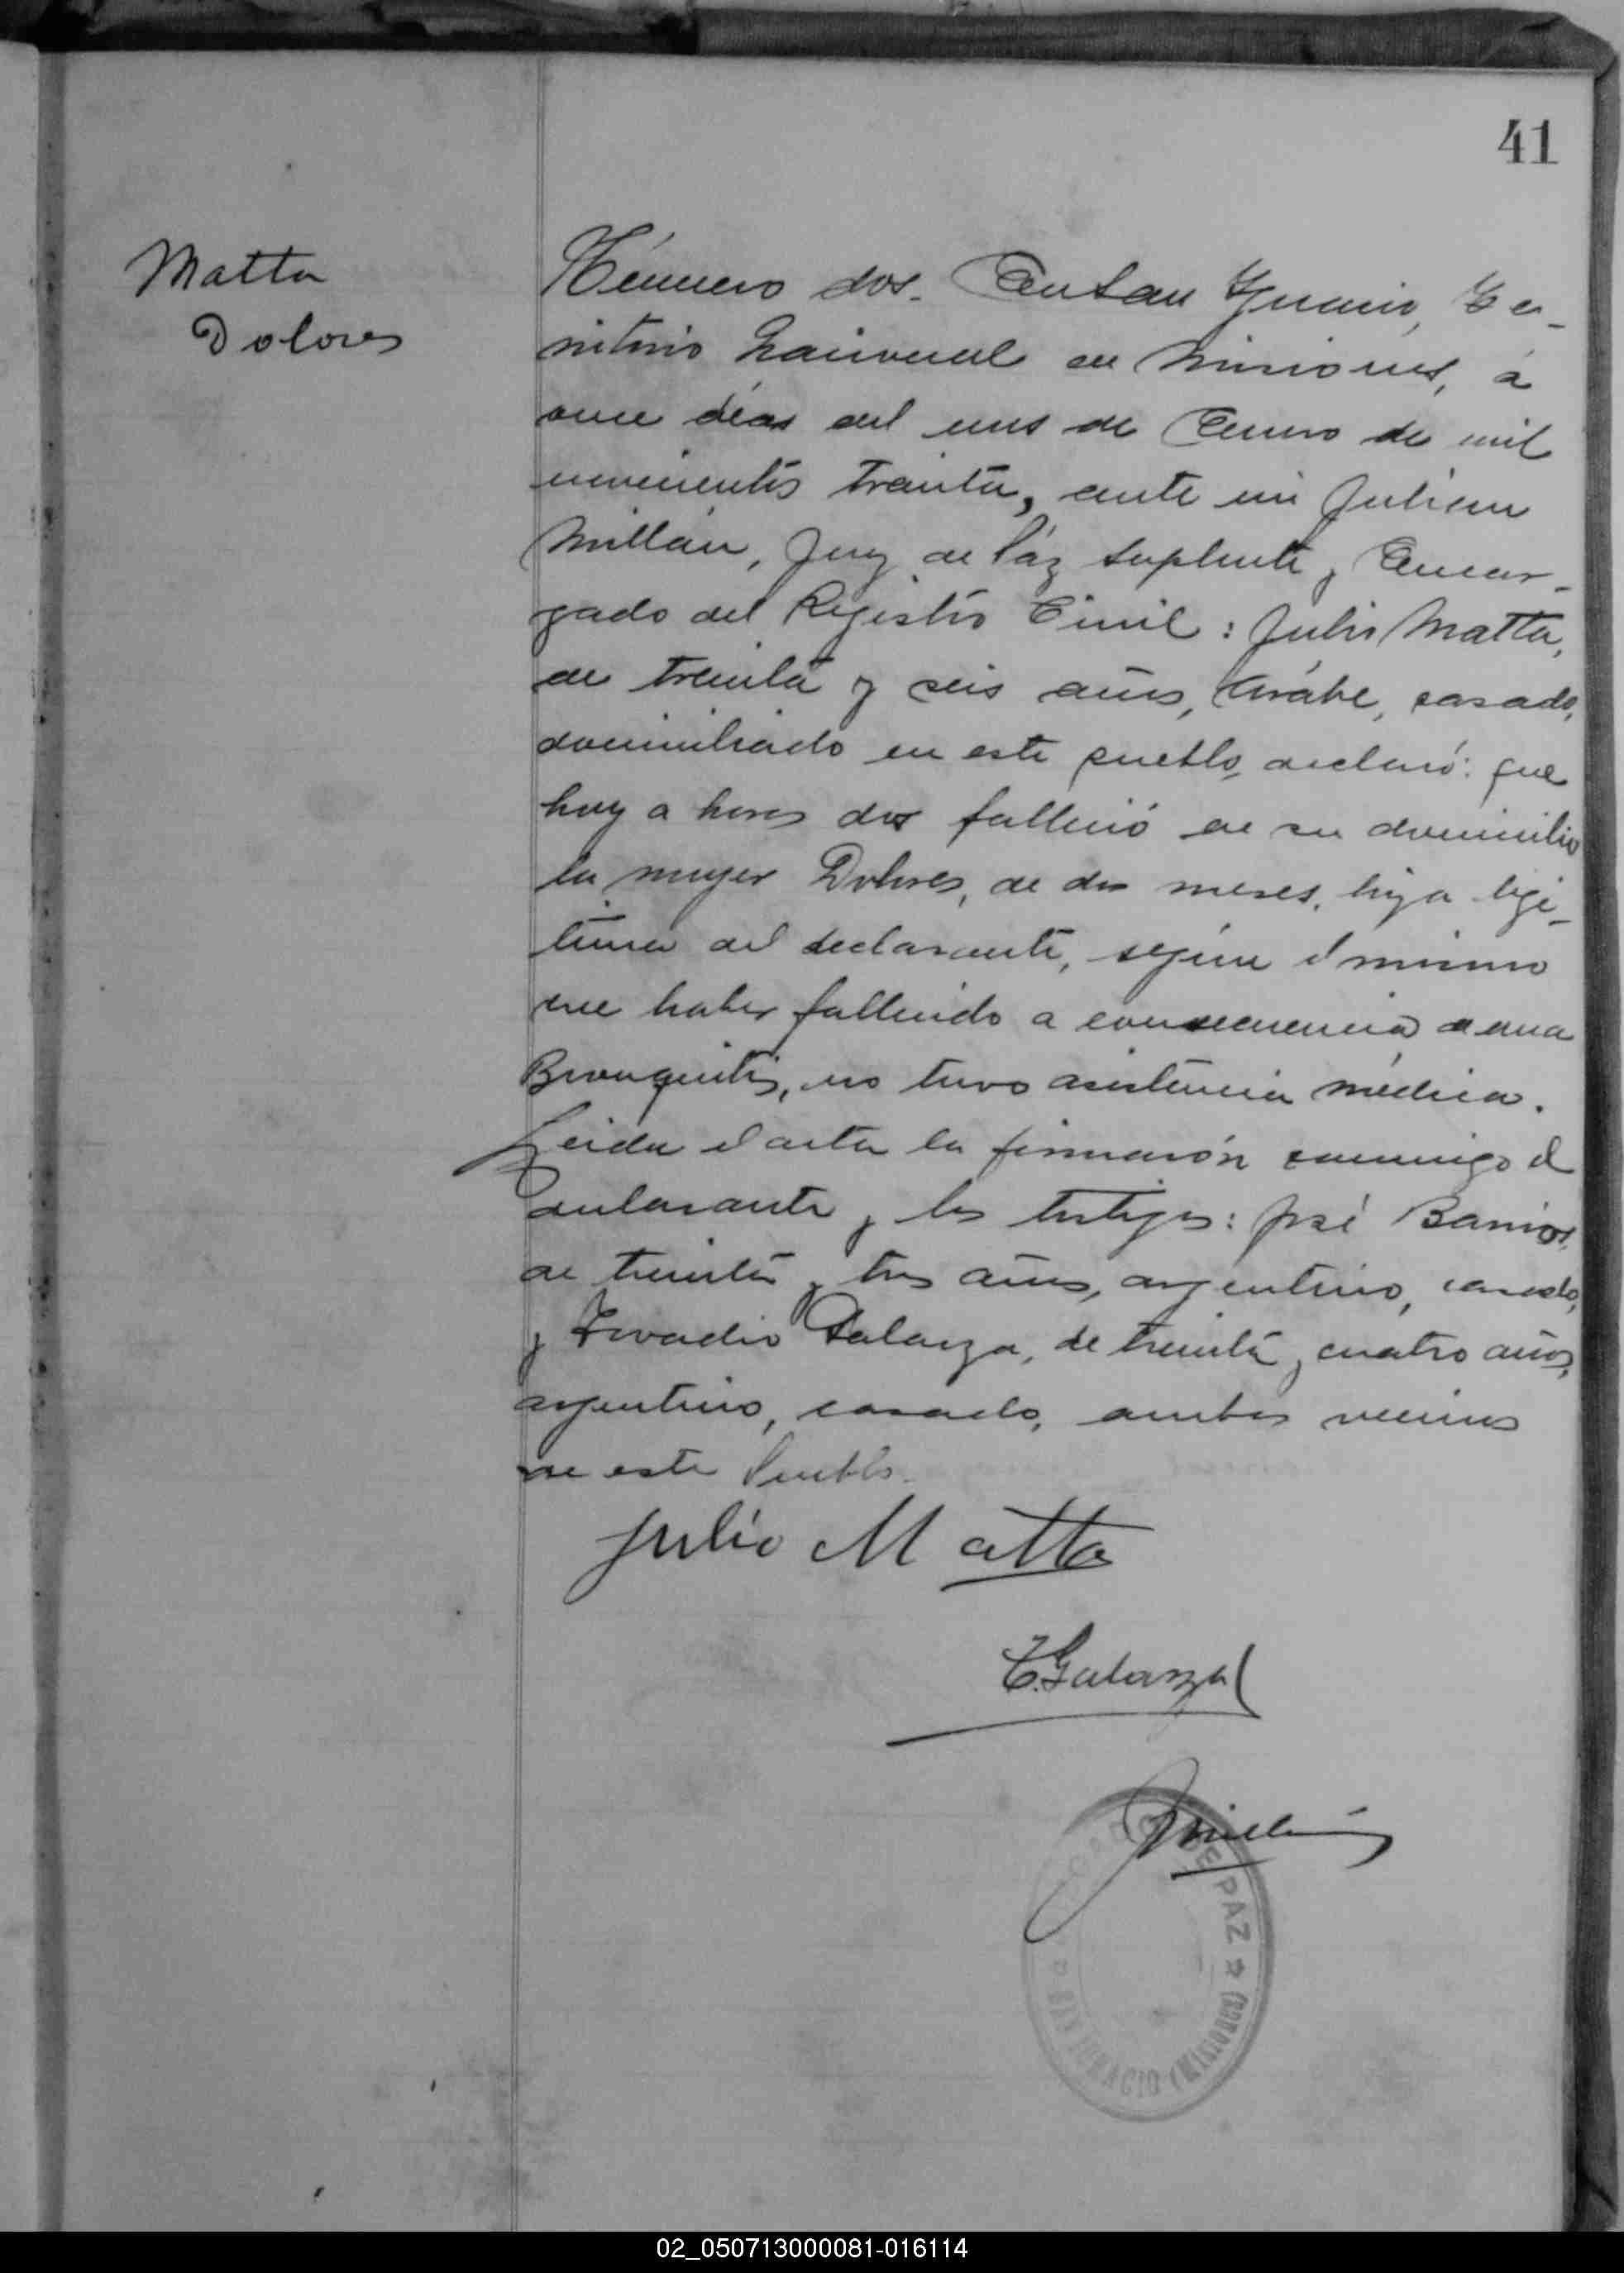 41
Matta
Dolores
Número dos. En San Ignacio, Te-
rritorio Nacional de Misiones, á
once días del mes de Enero de mil
novecientos treinta, ante mi Julian
Millán, Juez de Páz Suplente y Encar-
gado del Registro Civil: Julio Matta,
de treinta y seis años, Arabe, casado,
domiciliado en este pueblo, declaró: que
hoy a horas dos falleció en su domicilio
la mujer Dolores, de dos meses, hija legi-
tima del declarante, según el mismo
haber fallecido a consecuencia de una
Bronquitis, no tuvo asistencia médica.
Leida el acta la firmarón conmigo el
declarante y los testigos: José Barrios,
de treinta y tres años, argentino, casado,
y Galarza, de treinta y cuatro años,
argentino, casado, ambos vecinos
de este Pueblo.
Julio Matta
T. Galarza
JMillán
JUZGADO DE PAZ
SAN IGNACIO (MISIONES)
02_050713000081-016114